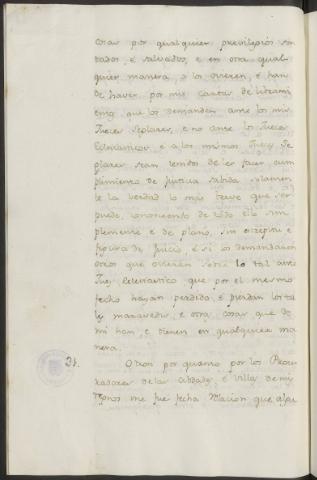 cosas por qualquier previlegios son
dados, e salvados, e en otra qual
quier manera, o los ovieren, e han
de haver por mis cartas de libram
que los demanden ante los mis
Jueces Seglares, e no ante los Jueces
Eclesiasticos e a los mismos Jueces Se
glares sean tenidos de les facer cum
plimiento de justicia sabida solamen
te la verdad lo mas breve que ser
pueda, conociendo de todo ello sim
plemente e de plano, sin estrepitu e
figura de juicio, e si los demandaren
otros que ovieren sobre lo tal ante
Juez eclesiastico que por el mesmo
fecho hayan perdido, e pierdan los ta
les maravedis, e otra cosas que de
mi han, e tienen en qualquiera ma
nera.
31. Otrosi por quanto por los Procu
radores de las Cibdades, e Villas de mis
Reynos me fue fecha relacion que algu